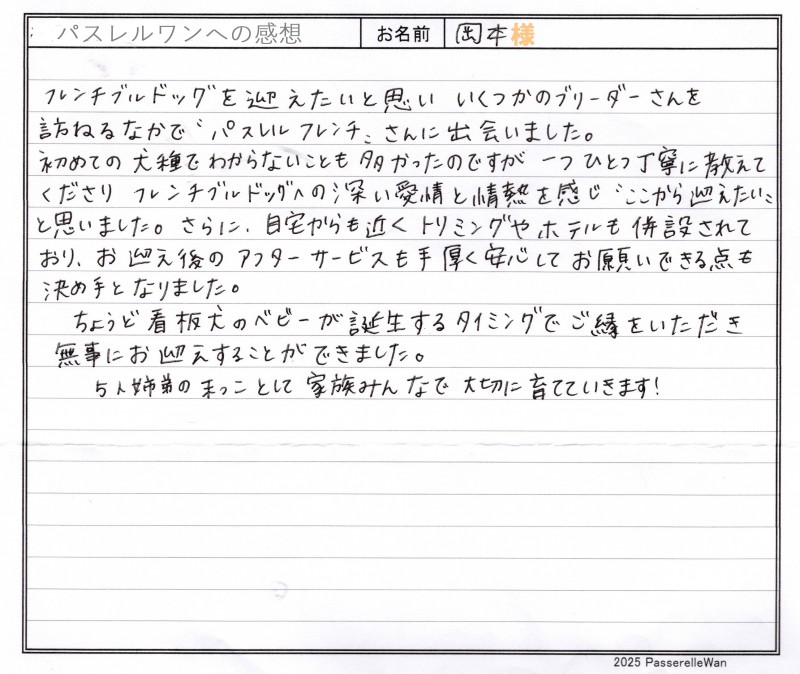 パスレルワンへの感想 お名前 岡本様
フレンチブルドッグを迎えたいと思い いくつかのブリーダーさんを
訪ねるなかで〝パスレル フレンチ〟さんに出会いました。
初めての犬種でわからないことも多かったのですが 一つひとつ丁寧に教えて
くださり フレンチブルドッグへの深い愛情と情熱を感じ〝ここから迎えたい〟
と思いました。さらに、自宅からも近くトリミングやホテルも併設されて
おり、お迎え後のアフターサービスも手厚く安心してお願いできる点も
決め手となりました。
ちょうど看板犬のベビーが誕生するタイミングでご縁をいただき
無事にお迎えすることができました。
5人姉弟の末っことして家族みんなで大切に育てていきます!
2025 PasserelleWan